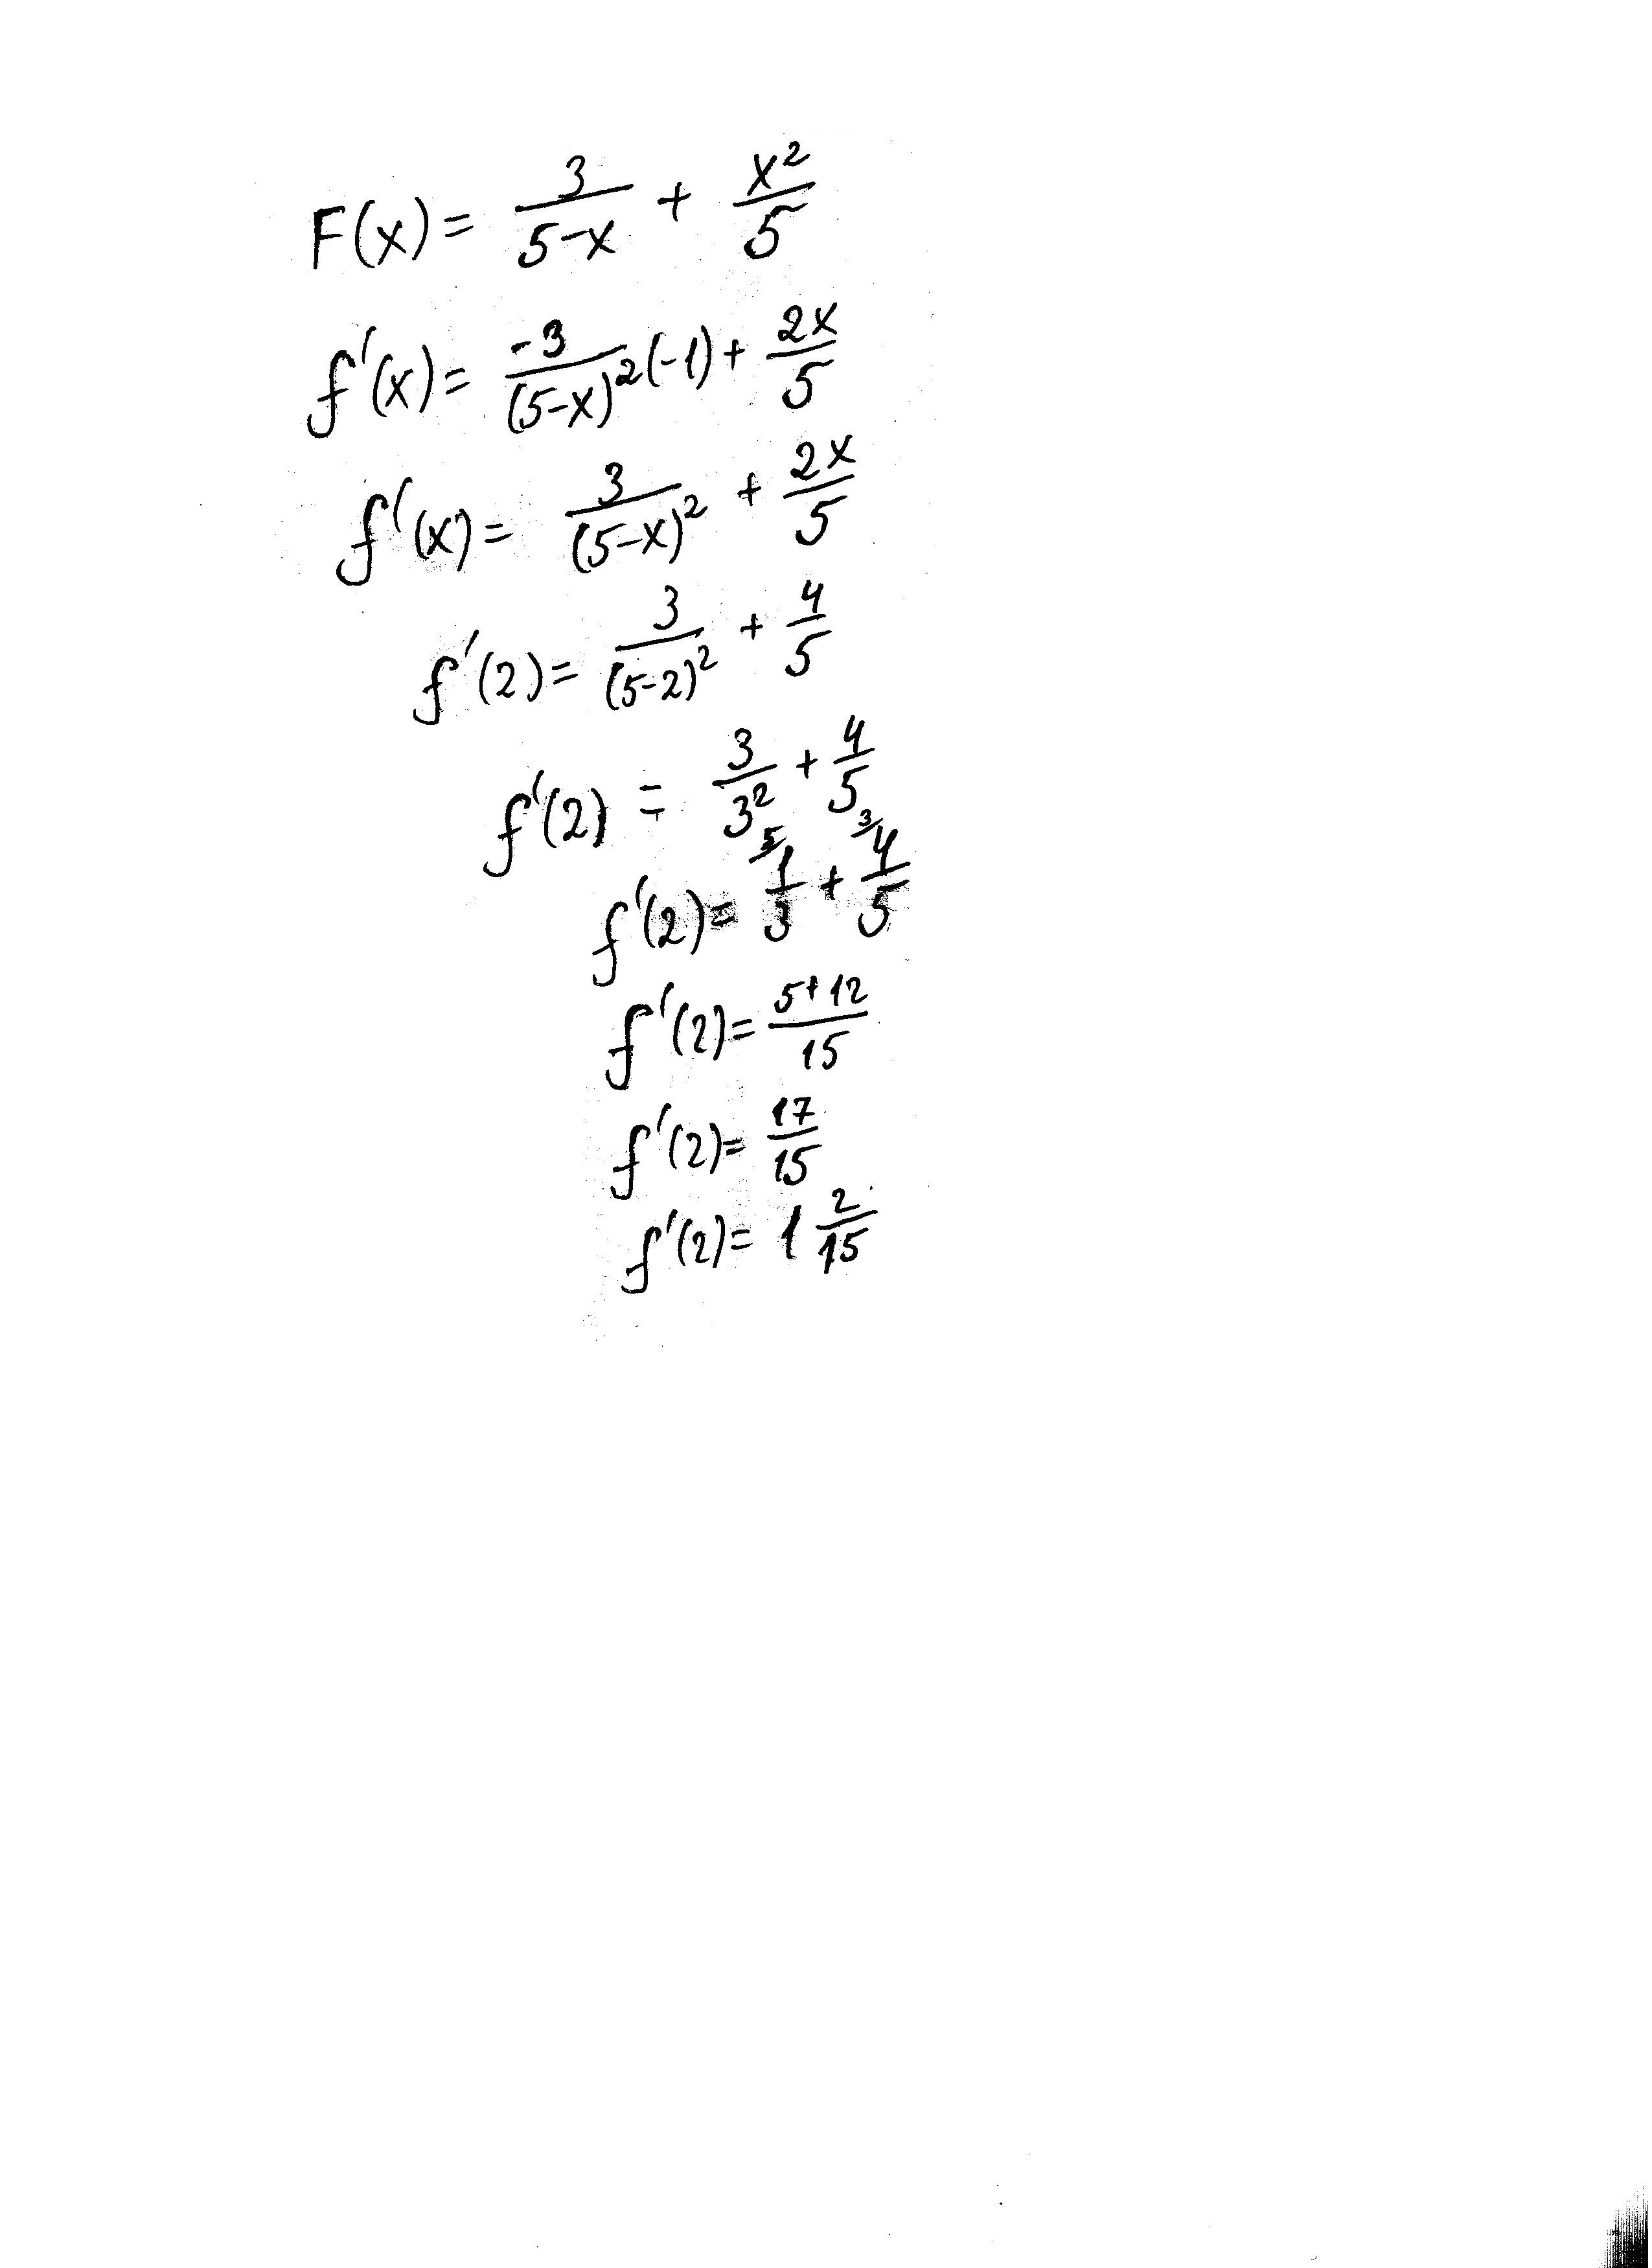 F(x) = 3/(5-x) + x²/5
f'(x) = -3/(5-x)² (-1) + 2x/5
f'(x) = 3/(5-x)² + 2x/5
f'(2) = 3/(5-2)² + 4/5
f'(2) = 3/3² + 4/5
f'(2) = ⁵⁄1/3 + ³⁄4/5
f'(2) = (5+12)/15
f'(2) = 17/15
f'(2) = 1 2/15